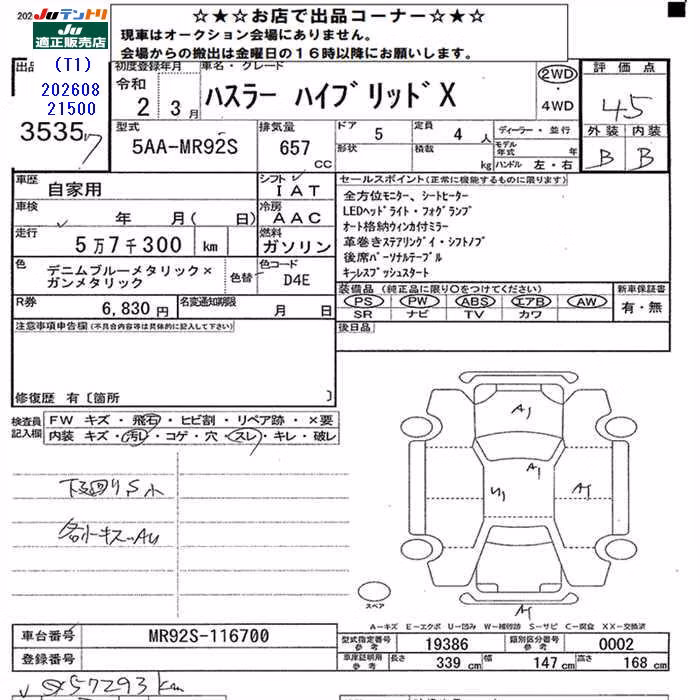 202
Juテントリ
Ju
適正販売店
☆★☆お店で出品コーナー☆★☆
現車はオークション会場にありません。
会場からの搬出は金曜日の16時以降にお願いします。
出品
(T1)
202608
21500
3535
初度登録年月
令和
2年 3月
車名・グレード
ハスラー ハイブリッドX
2WD
・
4WD
評価点
4.5
外装 内装
B B
型式
5AA-MR92S
排気量
657 CC
ドア 5
形状
定員 4 人
積載 kg
ディーラー・並行
モデル年式 年
ハンドル 左・右
車歴
自家用
シフト
IAT
車検
年 月( 日)
冷房
AAC
走行
5万7千300 km
燃料
ガソリン
色
デニムブルーメタリック×
ガンメタリック
色替
色コード
D4E
R券
6,830円
名変通知期限
月 日
セールスポイント(正常に機能するものに限ります)
全方位モニター、シートヒーター
LEDヘッドライト・フォグランプ
オート格納ウィンカ付ミラー
革巻きステアリングイ・シフトノブ
後席パーソナルテーブル
キーレスプッシュスタート
装備品(純正品に限り○をつけてください)
PS・PW・ABS・エアB・AW
SR・ナビ・TV・カワ
新車保証書
有・無
後日品
注意事項申告欄(不具合内容等は具体的に記入して下さい)
修復歴 有〔箇所 〕
検査員
記入欄
FW キズ・飛石・ヒビ割・リペア跡・×要
内装 キズ・汚レ・コゲ・穴・スレ・キレ・破レ
下廻りS小
各小キズ〜AU
A1
A1
U1
A1
A1
スペア
A−キズ E−エクボ U−凹み W−補修跡 S−サビ C−腐食 XX−交換済
車台番号
MR92S-116700
登録番号
型式指定番号
参考
19386
類別区分番号
参考
0002
車庫証明用
参考
長さ 339 cm 幅 147 cm 高さ 168 cm
57293 km